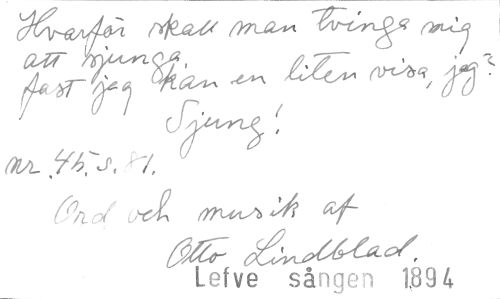 Hvarför skall man tvinga mig
att sjunga,
fast jag kan en liten visa, jag?
Sjung!
nr. 45. s. 81.
Ord och musik af
Otto Lindblad.
Lefve sången 1894